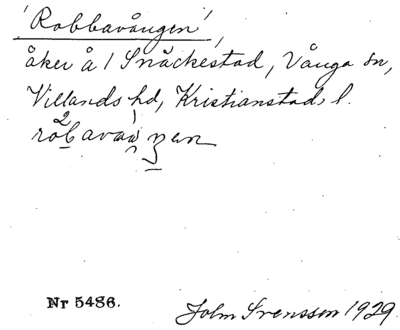 'Robbavången',
åker å 1 Snäckestad, Vånga sn,
Villands hd, Kristianstads l.
Nr 5486.
John Svensson 1929.